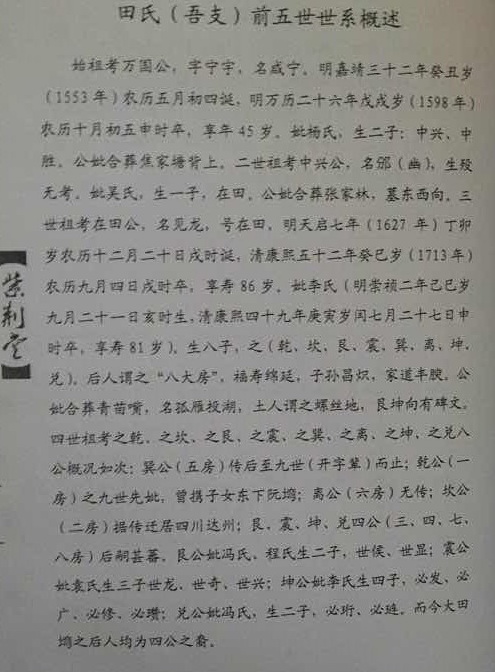 田氏（吾支）前五世世系概述
始祖考万国公，字宁宇，名咸宁。明嘉靖三十二年癸丑岁
（1553 年）农历五月初四诞，明万历二十六年戊戌岁（1598 年）
农历十月初五申时卒，享年 45 岁。妣杨氏，生二子：中兴、中
胜。公妣合葬焦家塘背上。二世祖考中兴公，名邠（幽），生殁
无考。妣吴氏，生一子，在田。公妣合葬张家林，墓东西向。三
世祖考在田公，名见龙，号在田，明天启七年（1627 年）丁卯
岁农历十二月二十日戌时诞，清康熙五十二年癸巳岁（1713 年）
农历九月四日戌时卒，享寿 86 岁。妣李氏（明崇祯二年己巳岁
九月二十一日亥时生，清康熙四十九年庚寅岁闰七月二十七日申
时卒，享寿 81 岁）。生八子，之（乾、坎、艮、震、巽、离、坤、
兑）。后人谓之“八大房”，福寿绵延，子孙昌炽，家道丰腴。公
妣合葬青苗嘴，名孤雁投湖，土人谓之螺丝地，艮坤向有碑文。
四世祖考之乾、之坎、之艮、之震、之巽、之离、之坤、之兑八
公概况如次：巽公（五房）传后至九世（开字辈）而止；乾公（一
房）之九世先妣，曾携子女东下阮塆；离公（六房）无传；坎公
（二房）据传迁居四川达州；艮、震、坤、兑四公（三、四、七、
八房）后嗣甚蕃，艮公妣冯氏、程氏生二子，世侯、世显；震公
妣袁氏生三子世龙、世奇、世兴；坤公妣李氏生四子，必发、必
广、必修、必瓒；兑公妣冯氏，生二子，必珩、必琏。而今大田
塆之后人均为四公之裔。
【紫荆堂】